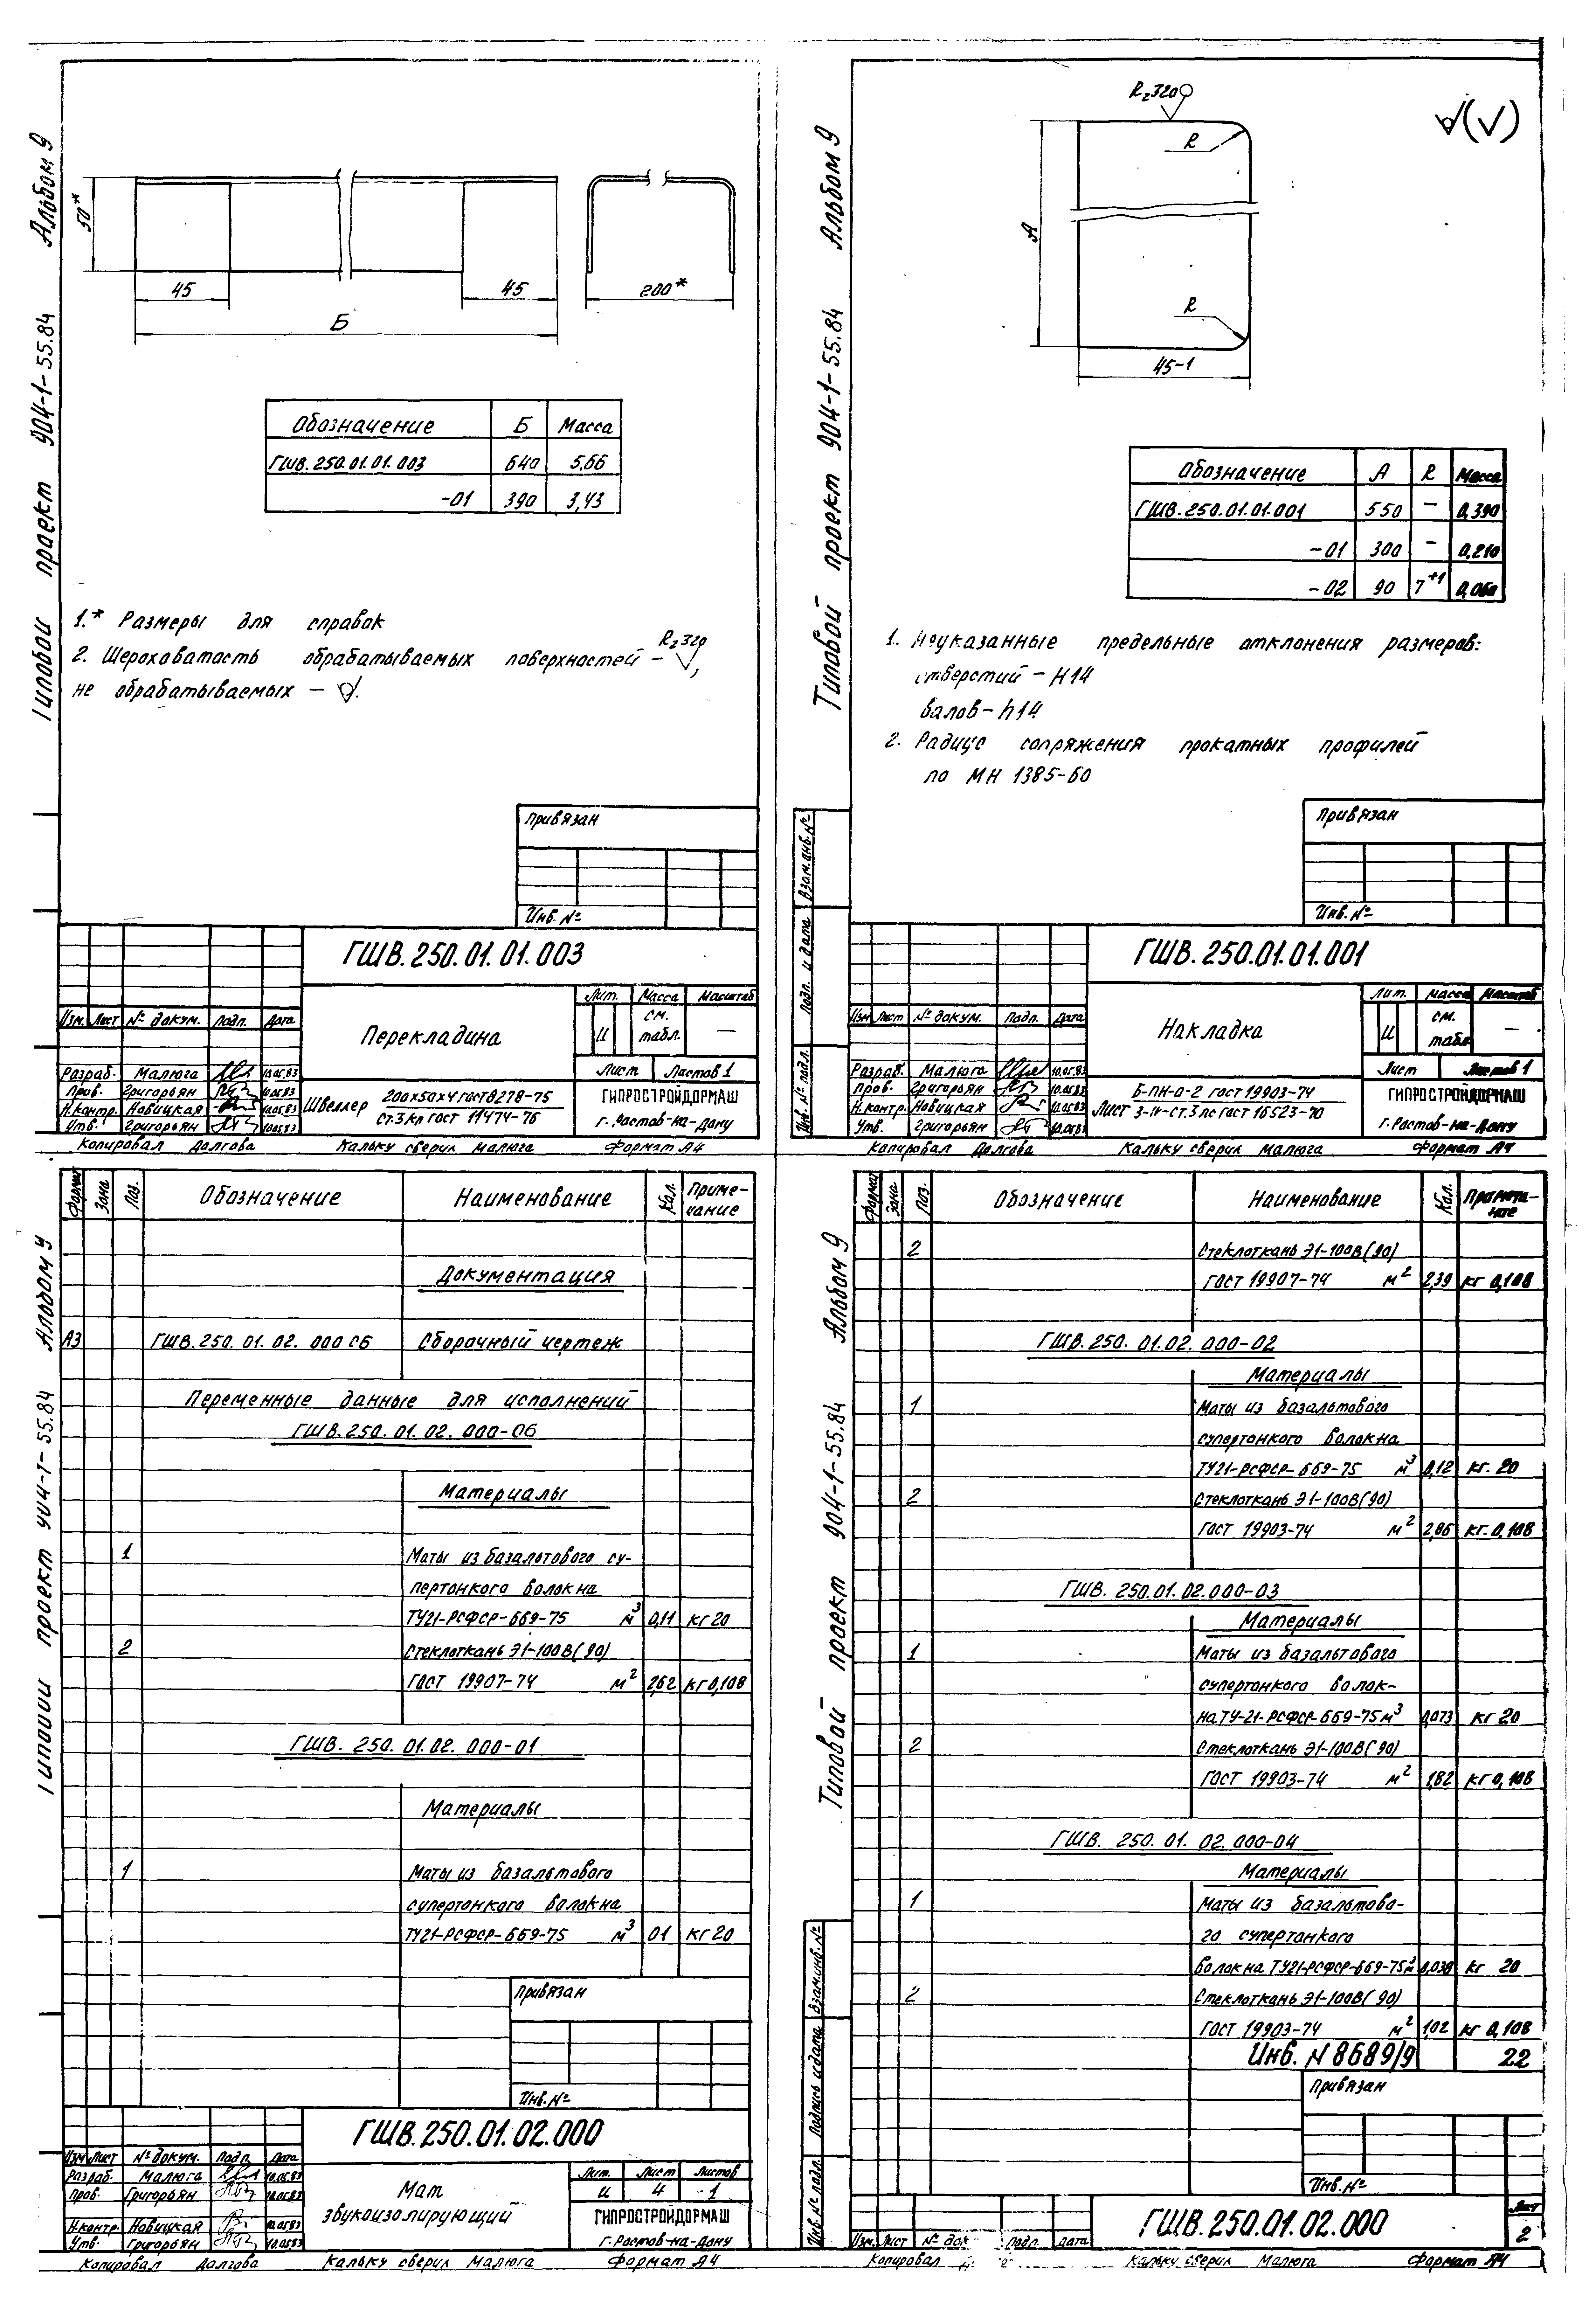 Альбом 9
Типовой проект 904-1-55.84
50*
45
45
200*
Б
Обозначение Б Масса
ГШВ.250.01.01.003 640 5,66
-01 390 3,43
1.* Размеры для справок
2. Шероховатость обрабатываемых поверхностей - Rz320,
не обрабатываемых -
Привязан
Инв. №
ГШВ.250.01.01.003
Изм. Лист № докум. Подп. Дата
Перекладина
Лит. Масса Масштаб
И см. табл. —
Лист Листов 1
Разраб. Малюга 10.05.83
Пров. Григорьян 10.05.83
Н.контр. Новицкая 10.05.83
Утв. Григорьян 10.05.83
Швеллер 200х50х4 гост 8278-75
Ст.3кп гост 11474-76
ГИПРОСТРОЙДОРМАШ
г. Ростов-на-Дону
Копировал Долгова Кальку сверил Малюга Формат А4
Альбом 9
Типовой проект 904-1-55.84
Rz320
R
А
R
45-1
Обозначение А R Масса
ГШВ.250.01.01.001 550 — 0,390
-01 300 — 0,210
-02 90 7+1 0,060
1. Неуказанные предельные отклонения размеров:
отверстий - Н14
валов - h14
2. Радиус сопряжения прокатных профилей
по МН 1385-60
Привязан
Инв. №
Взам.инв.№
Подп. и дата
Инв.№ подл.
ГШВ.250.01.01.001
Изм Лист № докум. Подп. Дата
Накладка
Лит. Масса Масштаб
И см. табл. —
Лист Листов 1
Разраб. Малюга 10.05.83
Пров. Григорьян 10.05.83
Н.контр. Новицкая 10.05.83
Утв. Григорьян 10.05.83
Лист Б-ПН-О-2 гост 19903-74
3-IV-Ст.3пс гост 16523-70
ГИПРОСТРОЙДОРМАШ
г.Ростов-на-Дону
Копировал Долгова Кальку сверил Малюга Формат А4
Альбом 9
Типовой проект 904-1-55.84
Формат Зона Поз. Обозначение Наименование Кол. Примечание
Документация
А3 ГШВ.250.01.02.000 СБ Сборочный чертеж
Переменные данные для исполнений
ГШВ.250.01.02.000-06
Материалы
1 Маты из базальтового су-
пертонкого волокна
ТУ21-РСФСР-669-75 м3 0,11 кг 20
2 Стеклоткань Э1-100В(90)
ГОСТ 19907-74 м2 2,62 кг 0,108
ГШВ. 250.01.02.000-01
Материалы
1 Маты из базальтового
супертонкого волокна
ТУ21-РСФСР-669-75 м3 01 кг 20
Привязан
Инв.№
ГШВ.250.01.02.000
Изм Лист № докум. Подп. Дата
Разраб. Малюга 10.05.83
Пров. Григорьян 10.05.83
Н.контр. Новицкая 10.05.83
Утв. Григорьян 10.05.83
Мат
звукоизолирующий
Лит. Лист Листов
И 4 1
ГИПРОСТРОЙДОРМАШ
г.Ростов-на-Дону
Копировал Долгова Кальку сверил Малюга Формат А4
Альбом 9
Типовой проект 904-1-55.84
Формат Зона Поз. Обозначение Наименование Кол. Примечание
2 Стеклоткань Э1-100В(90)
ГОСТ 19907-74 м2 2,39 кг 0,108
ГШВ.250.01.02.000-02
Материалы
1 Маты из базальтового
супертонкого волокна
ТУ21-РСФСР-669-75 м3 0,12 кг. 20
2 Стеклоткань Э1-100В(90)
ГОСТ 19903-74 м2 2,86 кг. 0,108
ГШВ. 250.01.02.000-03
Материалы
1 Маты из базальтового
супертонкого волок-
на ТУ-21-РСФСР-669-75 м3 0,073 кг 20
2 Стеклоткань Э1-100В(90)
ГОСТ 19903-74 м2 1,82 кг 0,108
ГШВ. 250.01.02.000-04
Материалы
1 Маты из базальтово-
го супертонкого
волокна ТУ21-РСФСР-669-75 м3 0,038 кг 20
2 Стеклоткань Э1-100В(90)
ГОСТ 19903-74 м2 1,02 кг 0,108
Инв. N 8689/9 22
Привязан
Инв. №
Взам.инв.№
Подпись и дата
Инв.№ подл.
ГШВ.250.01.02.000
Лист
2
Изм. Лист № док Подп. Дата
Копировал Кальку сверил Малюга Формат А4